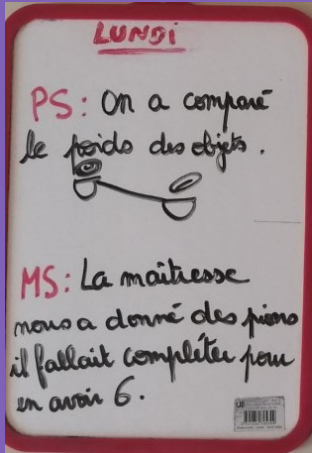 LUNDI
PS: On a comparé
le poids des objets.
MS: La maîtresse
nous a donné des pions
il fallait compléter pour
en avoir 6.